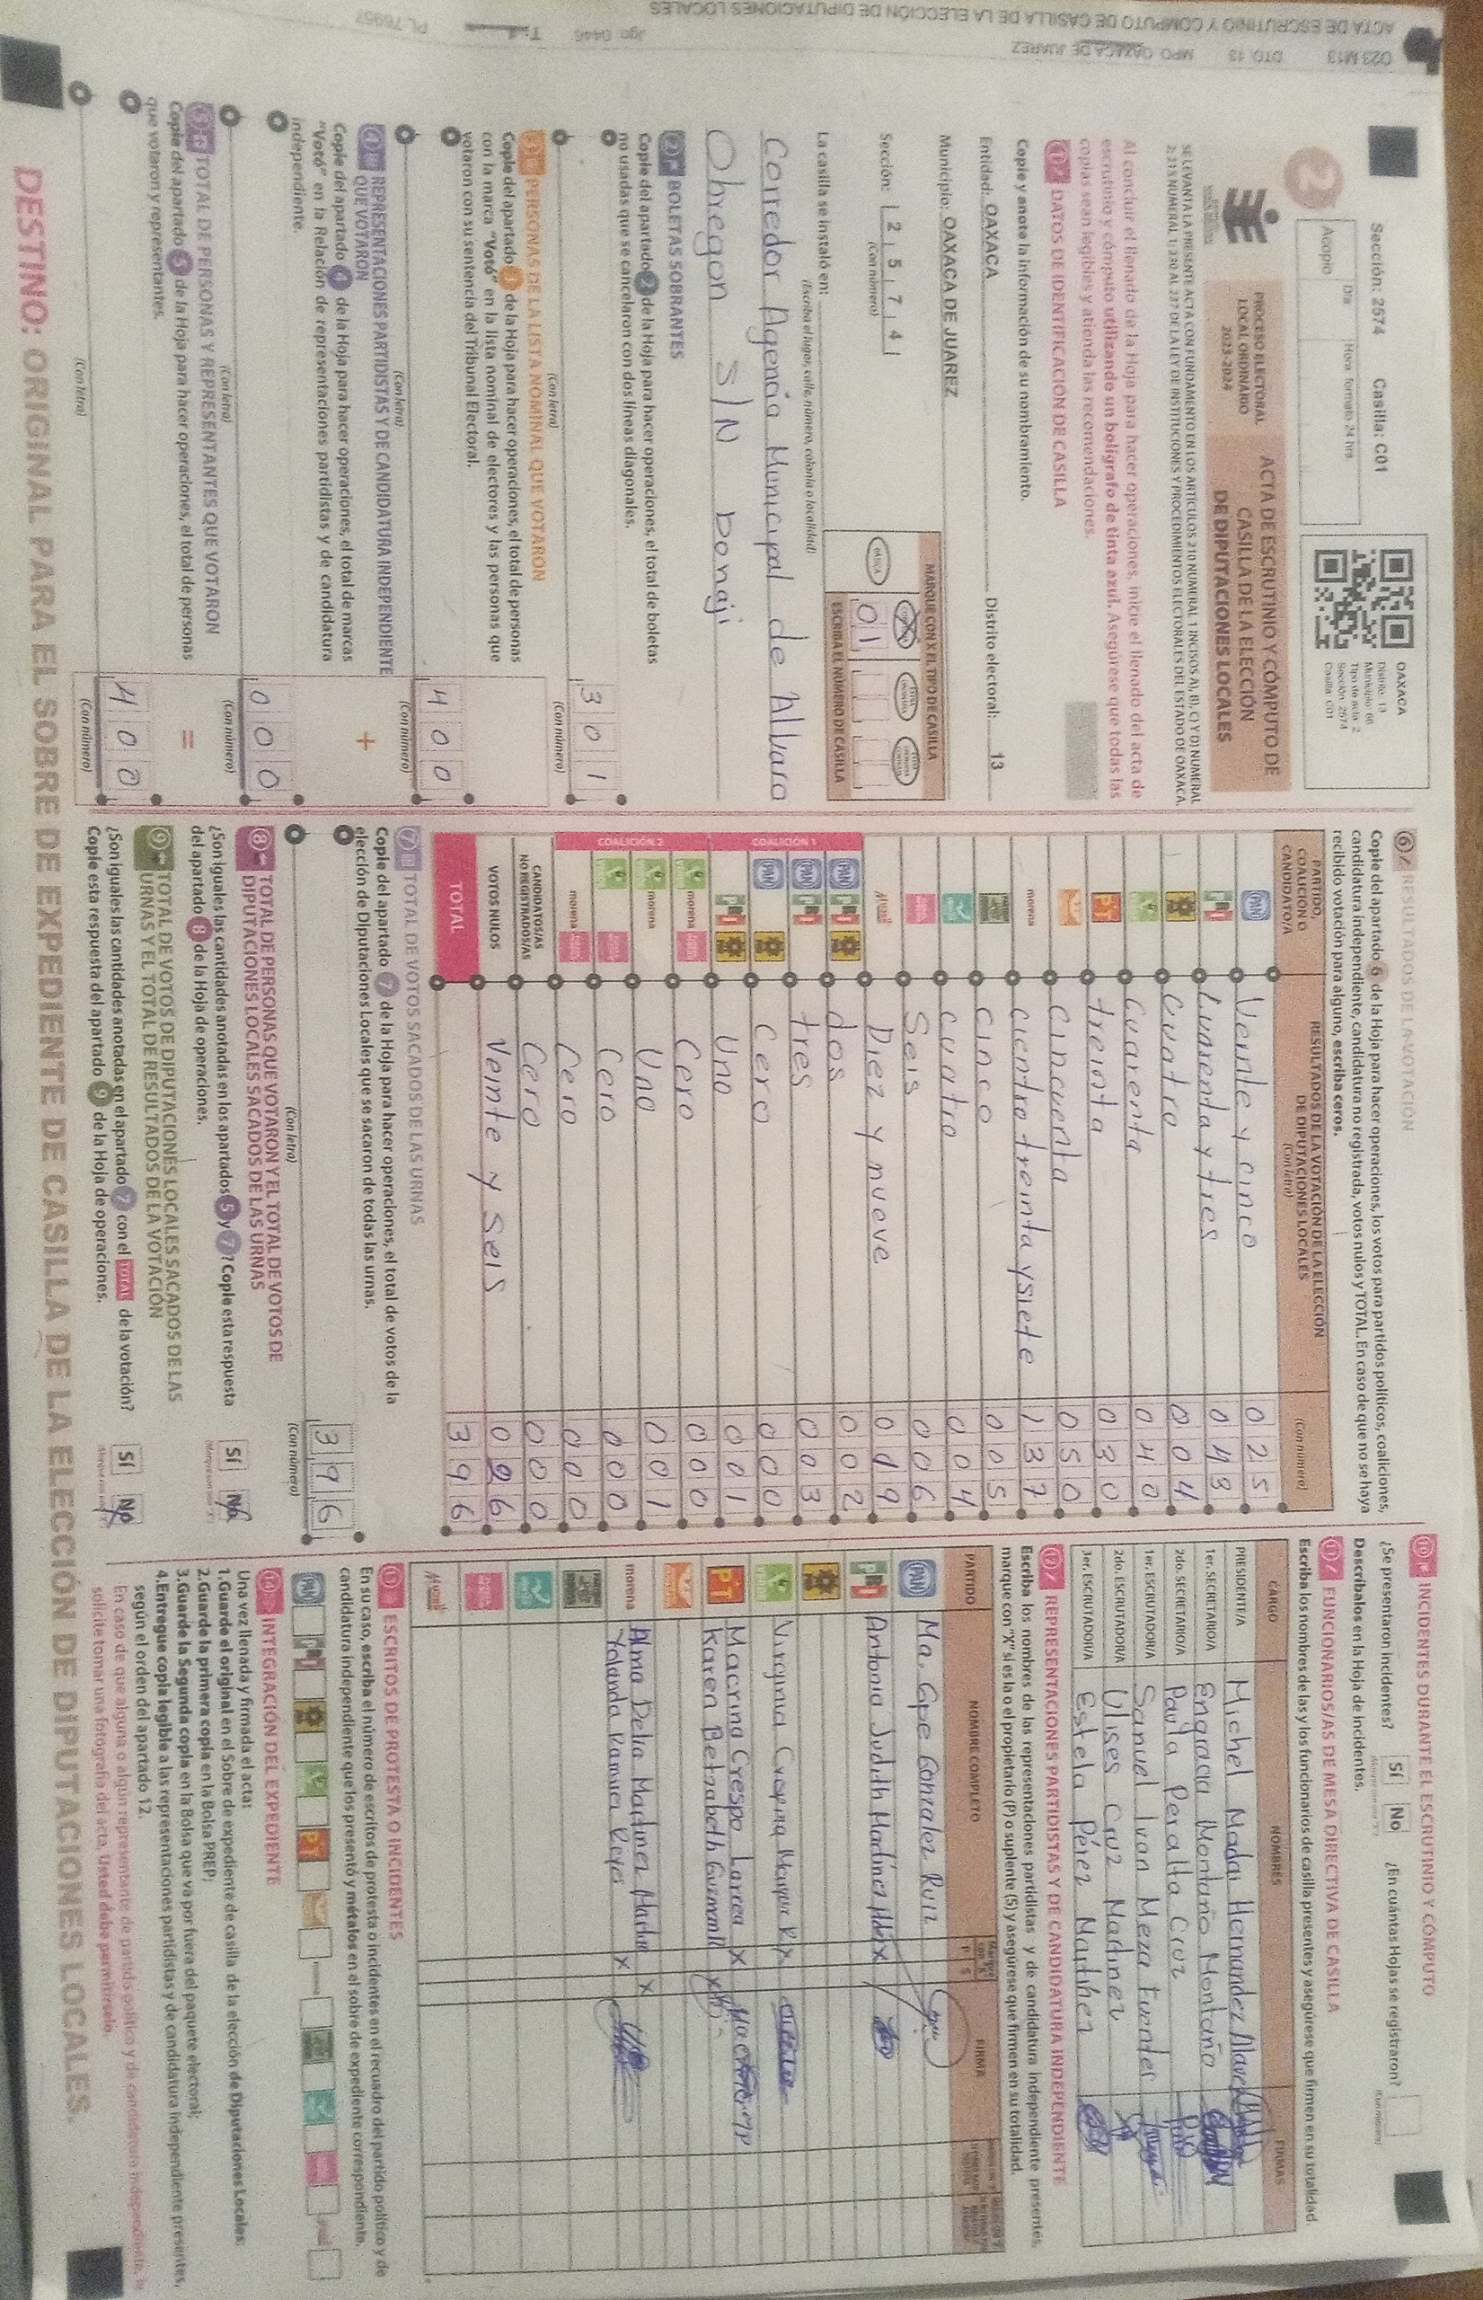 Sección: 2574 Casilla: C01
Día Hora formato 24 hrs
Acopio
OAXACA
Distrito: 13
Municipio: 66
Tipo de acta: 2
Sección: 2574
Casilla: C01
2
PROCESO ELECTORAL
LOCAL ORDINARIO
2023-2024
ACTA DE ESCRUTINIO Y CÓMPUTO DE
CASILLA DE LA ELECCIÓN
DE DIPUTACIONES LOCALES
SE LEVANTA LA PRESENTE ACTA CON FUNDAMENTO EN LOS ARTÍCULOS 210 NUMERAL 1 INCISOS A), B), C) Y D) NUMERAL
2; 235 NUMERAL 1; 230 AL 237 DE LA LEY DE INSTITUCIONES Y PROCEDIMIENTOS ELECTORALES DEL ESTADO DE OAXACA.
Al concluir el llenado de la Hoja para hacer operaciones, inicie el llenado del acta de
escrutinio y cómputo utilizando un bolígrafo de tinta azul. Asegúrese que todas las
copias sean legibles y atienda las recomendaciones.
1 DATOS DE IDENTIFICACIÓN DE CASILLA
Copie y anote la información de su nombramiento.
Entidad: OAXACA Distrito electoral: 13
Municipio: OAXACA DE JUAREZ
Sección: 2 5 7 4
(Con número)
MARQUE CON X EL TIPO DE CASILLA
BÁSICA
01
ESCRIBA EL NÚMERO DE CASILLA
La casilla se instaló en:
(Escriba el lugar, calle, número, colonia o localidad)
Corredor Agencia Municipal de Alvaro
Obregon S/N Donaji
2 BOLETAS SOBRANTES
Copie del apartado 2 de la Hoja para hacer operaciones, el total de boletas
no usadas que se cancelaron con dos líneas diagonales.
301
(Con letra) (Con número)
3 PERSONAS DE LA LISTA NOMINAL QUE VOTARON
Copie del apartado 3 de la Hoja para hacer operaciones, el total de personas
con la marca "Votó" en la lista nominal de electores y las personas que
votaron con su sentencia del Tribunal Electoral.
400
(Con letra) (Con número)
4 REPRESENTACIONES PARTIDISTAS Y DE CANDIDATURA INDEPENDIENTE
QUE VOTARON
+
Copie del apartado 4 de la Hoja para hacer operaciones, el total de marcas
"Votó" en la Relación de representaciones partidistas y de candidatura
independiente.
000
(Con letra) (Con número)
5 TOTAL DE PERSONAS Y REPRESENTANTES QUE VOTARON
=
Copie del apartado 5 de la Hoja para hacer operaciones, el total de personas
que votaron y representantes.
400
(Con letra) (Con número)
6 RESULTADOS DE LA VOTACIÓN
Copie del apartado 6 de la Hoja para hacer operaciones, los votos para partidos políticos, coaliciones,
candidatura independiente, candidatura no registrada, votos nulos y TOTAL. En caso de que no se haya
recibido votación para alguno, escriba ceros.
PARTIDO,
COALICIÓN O
CANDIDATO/A
RESULTADOS DE LA VOTACIÓN DE LA ELECCIÓN
DE DIPUTACIONES LOCALES
(Con letra) (Con número)
PAN Veinte y cinco 025
PRI Cuarenta y tres 043
Cuatro 004
Cuarenta 040
PT treinta 030
cincuenta 050
morena ciento treinta y siete 137
cinco 005
cuatro 004
Seis 006
Diez y nueve 019
COALICIÓN 1
PAN PRI dos 002
PAN PRI tres 003
PAN Cero 000
PRI Uno 001
COALICIÓN 2
morena Cero 000
morena Uno 001
Cero 000
morena Cero 000
CANDIDATOS/AS
NO REGISTRADOS/AS Cero 000
VOTOS NULOS Veinte y seis 026
TOTAL 396
7 TOTAL DE VOTOS SACADOS DE LAS URNAS
Copie del apartado 7 de la Hoja para hacer operaciones, el total de votos de la
elección de Diputaciones Locales que se sacaron de todas las urnas.
396
(Con letra) (Con número)
8 TOTAL DE PERSONAS QUE VOTARON Y EL TOTAL DE VOTOS DE
DIPUTACIONES LOCALES SACADOS DE LAS URNAS
¿Son iguales las cantidades anotadas en los apartados 5 y 7? Copie esta respuesta
del apartado 8 de la Hoja de operaciones.
Sí No
9 TOTAL DE VOTOS DE DIPUTACIONES LOCALES SACADOS DE LAS
URNAS Y EL TOTAL DE RESULTADOS DE LA VOTACIÓN
¿Son iguales las cantidades anotadas en el apartado 7 con el TOTAL de la votación?
Copie esta respuesta del apartado 9 de la Hoja de operaciones.
Sí No
10 INCIDENTES DURANTE EL ESCRUTINIO Y CÓMPUTO
¿Se presentaron incidentes? Sí No ¿En cuántas Hojas se registraron?
Descríbalos en la Hoja de Incidentes.
11 FUNCIONARIOS/AS DE MESA DIRECTIVA DE CASILLA
Escriba los nombres de las y los funcionarios de casilla presentes y asegúrese que firmen en su totalidad.
CARGO NOMBRES FIRMAS
PRESIDENTE/A Michel Madai Hernandez
1er. SECRETARIO/A Engracia Montaño Montaño
2do. SECRETARIO/A Paula Peralta Cruz
1er. ESCRUTADOR/A Samuel Ivan Meza Fuentes
2do. ESCRUTADOR/A Ulises Cruz Madinev
3er. ESCRUTADOR/A Estela Pérez Martinez
12 REPRESENTACIONES PARTIDISTAS Y DE CANDIDATURA INDEPENDIENTE
Escriba los nombres de las representaciones partidistas y de candidatura independiente presentes,
marque con "X" si es la o el propietario (P) o suplente (S) y asegúrese que firmen en su totalidad.
PARTIDO NOMBRE COMPLETO P S FIRMA
PAN Ma. Gpe Gonzalez Ruiz
PRI Antonia Judith Martínez
Virginia X
PT Macrina Crespo Larrea X
Karen Betzabeth Guzman X
morena Alma Delia Martinez X
Yolanda Ramirez Reyes X
13 ESCRITOS DE PROTESTA O INCIDENTES
En su caso, escriba el número de escritos de protesta o incidentes en el recuadro del partido político y de
candidatura independiente que los presentó y métalos en el sobre de expediente correspondiente.
PAN PT
14 INTEGRACIÓN DEL EXPEDIENTE
Una vez llenada y firmada el acta:
1.Guarde el original en el Sobre de expediente de casilla de la elección de Diputaciones Locales;
2.Guarde la primera copia en la Bolsa PREP;
3.Guarde la Segunda copia en la Bolsa que va por fuera del paquete electoral;
4.Entregue copia legible a las representaciones partidistas y de candidatura independiente presentes,
según el orden del apartado 12.
En caso de que alguna o algún representante de partido político y de candidatura independiente, le
solicite tomar una fotografía del acta, Usted debe permitírselo.
DESTINO: ORIGINAL PARA EL SOBRE DE EXPEDIENTE DE CASILLA DE LA ELECCIÓN DE DIPUTACIONES LOCALES.
023 M13 DTO. 13 MPO. OAXACA DE JUAREZ
ACTA DE ESCRUTINIO Y CÓMPUTO DE CASILLA DE LA ELECCIÓN DE DIPUTACIONES LOCALES
Jgo. 0446